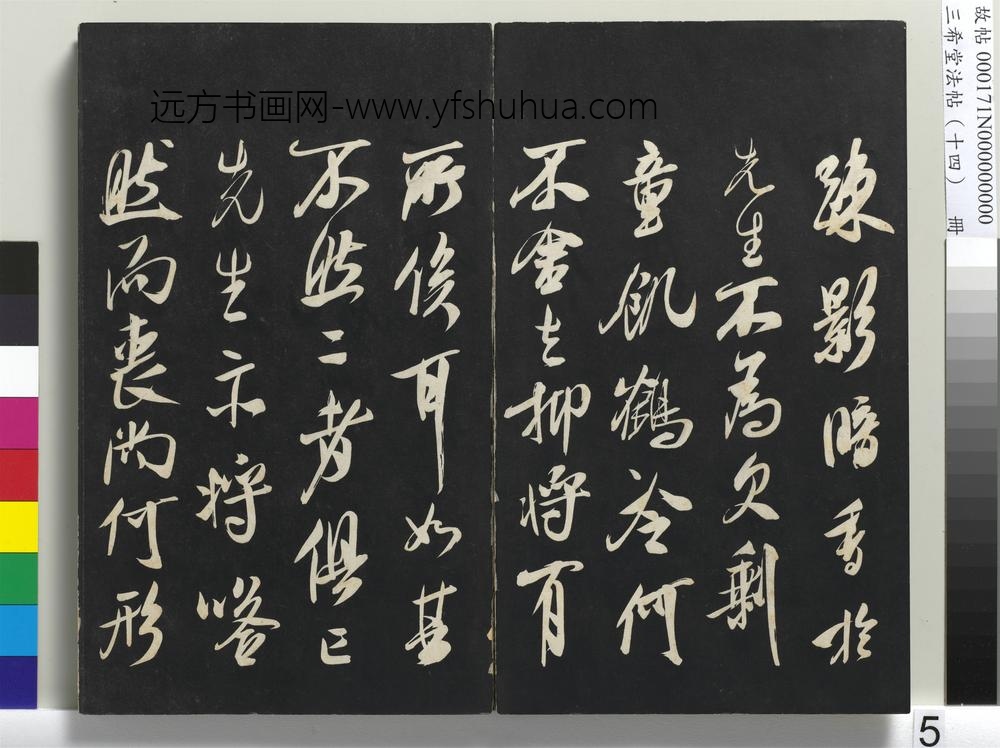 疎影暗香於
先生不為欠剩
童飢鶴冷何
不舍去抑將有
所俟耶如其
不然二者俱亡
先生亦將嗒
然而喪尚何形
远方书画网-www.yfshuhua.com
故帖 000171N000000000
三希堂法帖（十四） 册
5